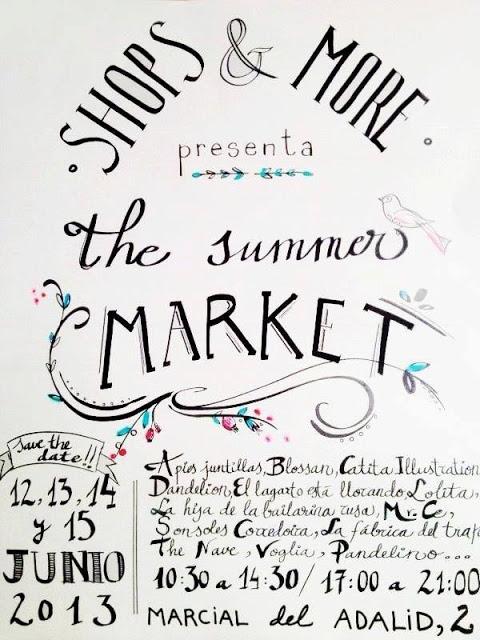 SHOPS & MORE
presenta
the summer
MARKET
Save the
date!!
12, 13, 14
y 15
JUNIO
2013
Apíos juntillas, Blossan, Catita Illustration
Dandelion, El lagarto está llorando, Lolita,
La hija de la bailarina rusa, Mr. Ce,
Sonsoles Corredoira, La fábrica del trap
The Nave, Voglia, Pandelino...
10:30 a 14:30/ 17:00 a 21:00
MARCIAL del ADALID, 2